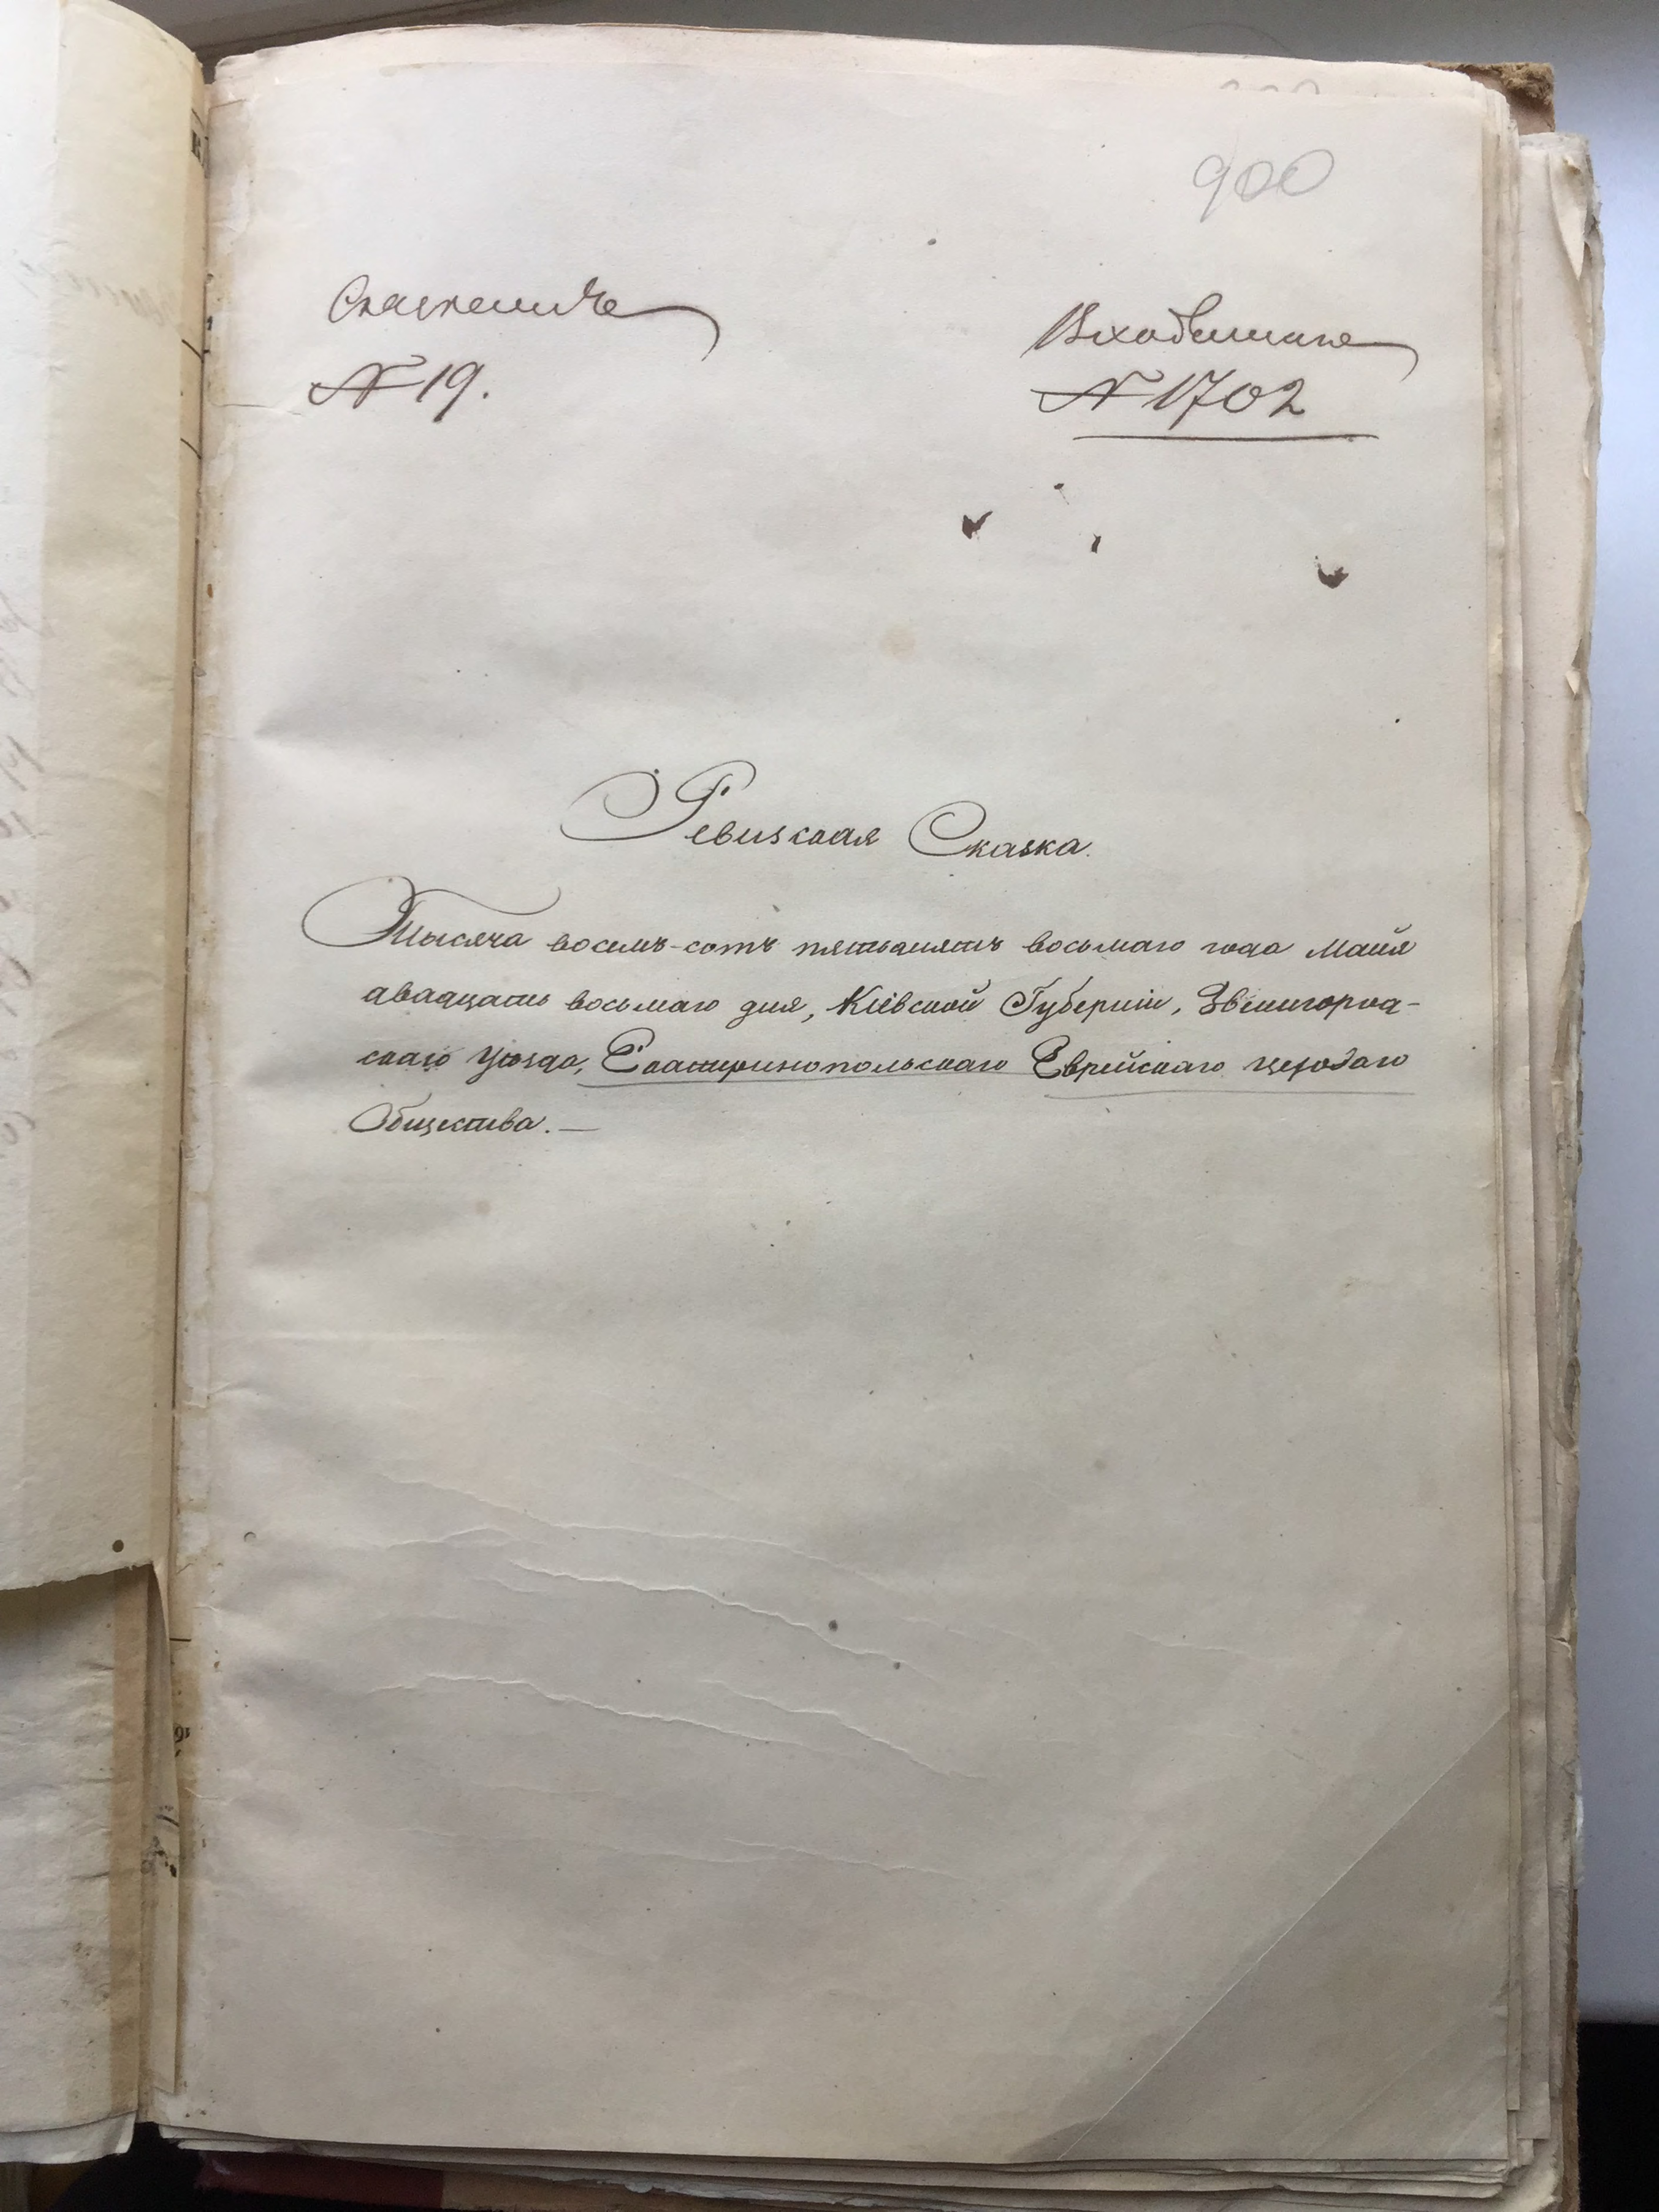 900
№ 19.
Входящаго
№ 1702
Ревизская Сказка.
Тысяча восемь-сотъ пятьдесятъ восьмаго года Маія
двадцать восьмаго дня, Кіевской Губерніи, Звенигород-
скаго Уѣзда, Екатеринопольскаго Еврейскаго
Общества.—